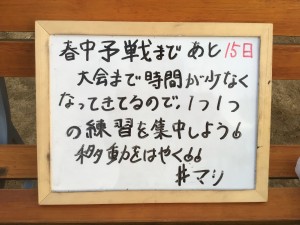 春中予戦まで あと 15日
大会まで時間が少なく
なってきてるので、1つ1つ
の練習を集中しよう!
移動をはやく!!
#マリ